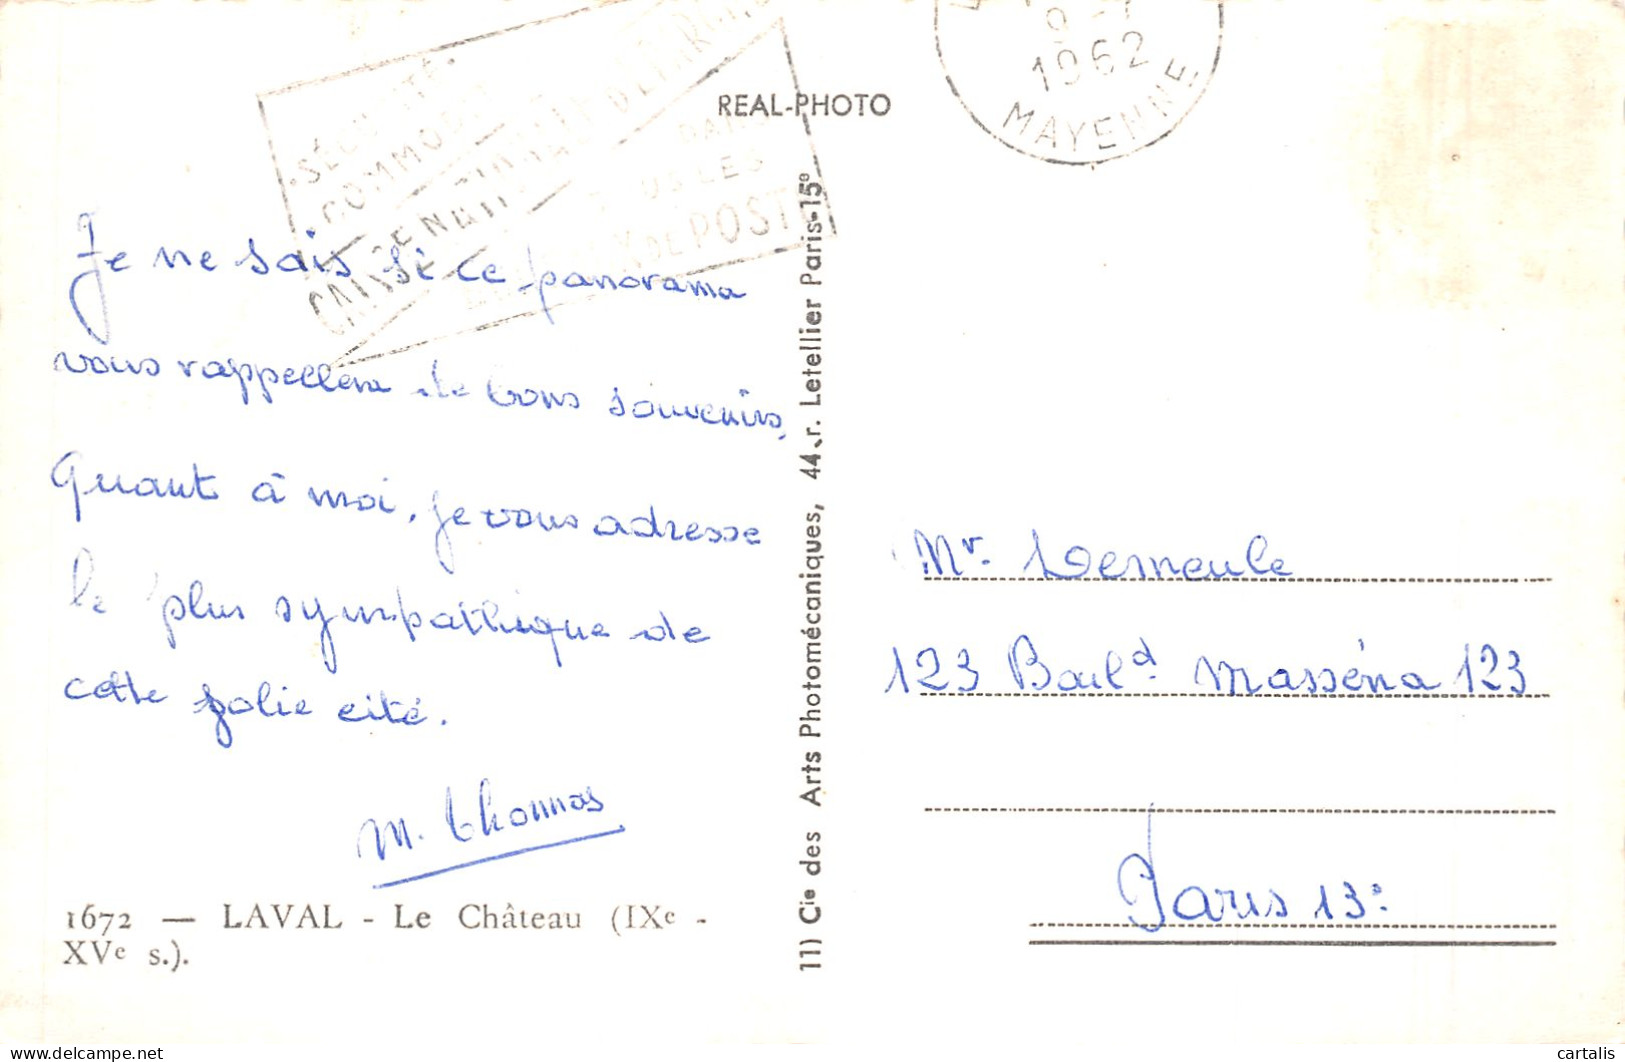 SÉCURITÉ
COMMODITÉ
CAISSE NATIONALE D'ÉPARGNE
DANS
TOUS LES
BUREAUX DE POSTE
1962
MAYENNE
REAL-PHOTO
Je ne sais si ce panorama
vous rappellera de bons souvenirs,
Quant à moi, je vous adresse
le plus sympathique de
cette jolie cité.
M. Thomas
1672 — LAVAL - Le Château (IXe -
XVe s.).
11) Cie des Arts Photomécaniques, 44, r. Letellier Paris-15e
Mr. Demeule
123 Boul.d Masséna 123
Paris 13e
cartalis
delcampe.net